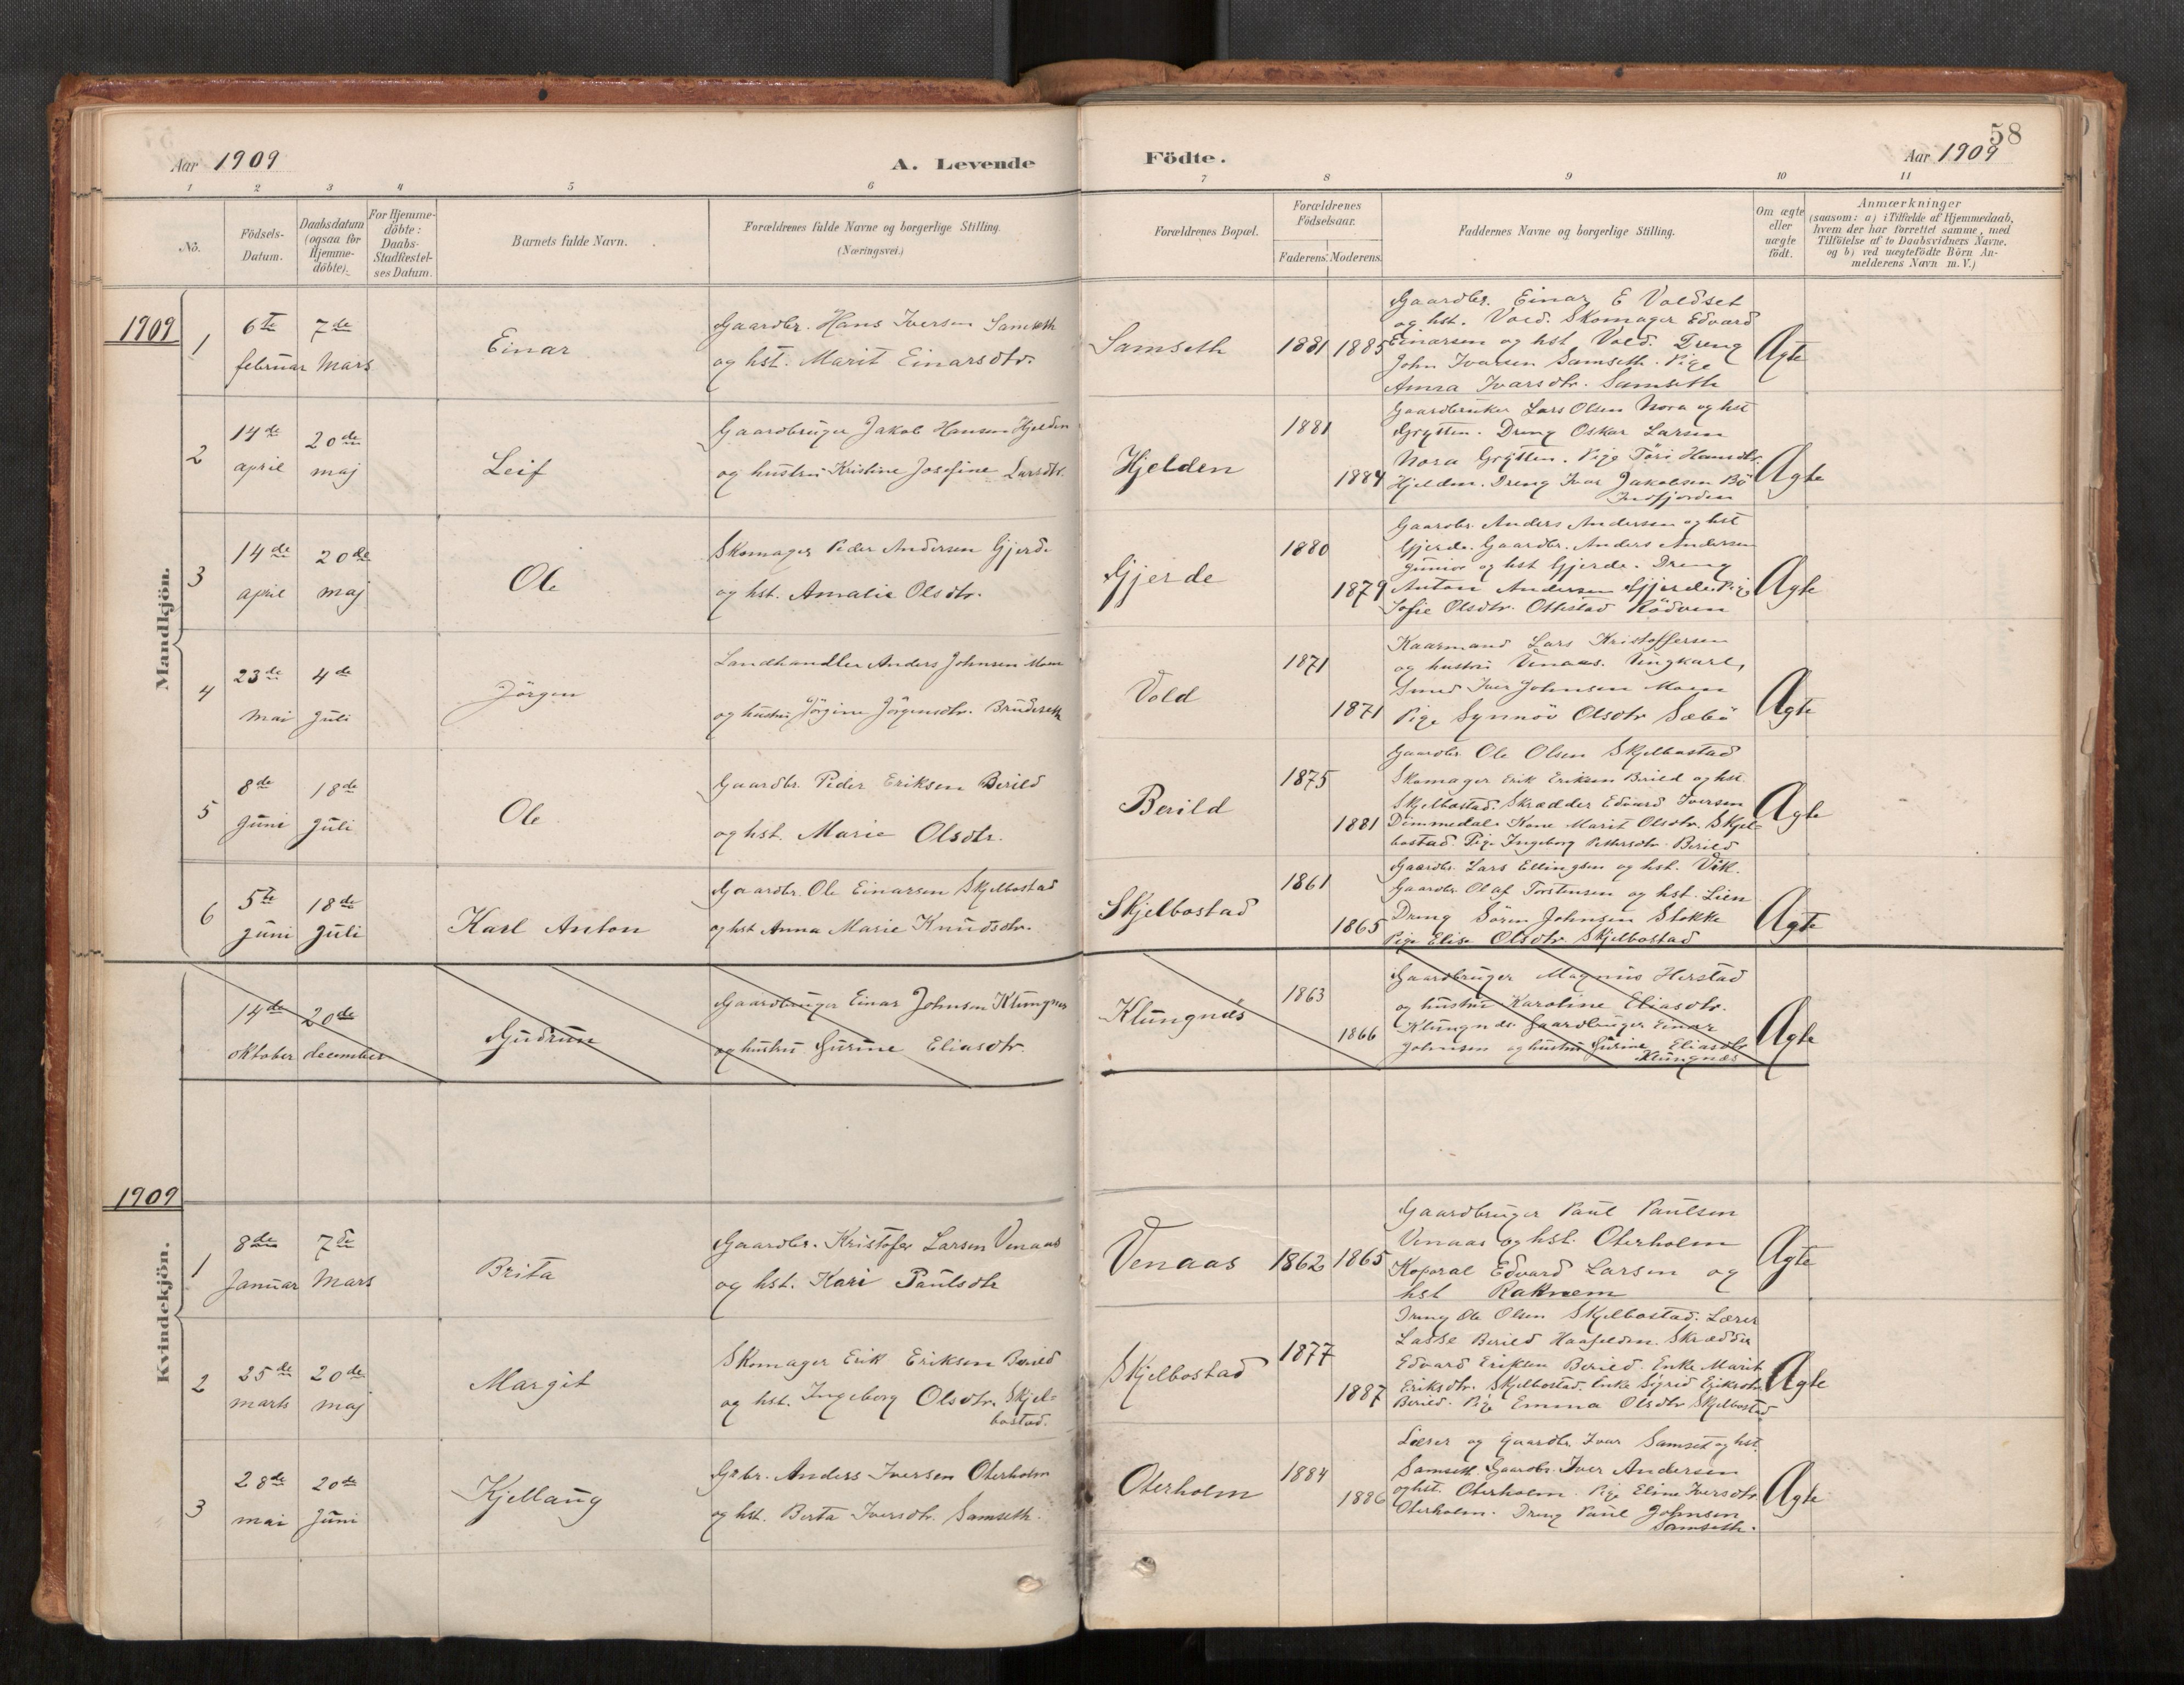 58
Aar 1909
A. Levende
Födte.
Aar 1909
1 2 3 4 5 6 7 8 9 10 11
No.
Födsels-
Datum.
Daabsdatum
(ogsaa for
Hjemme-
döbte).
For Hjemme-
döbte:
Daabs-
Stadfæstel-
ses Datum.
Barnets fulde Navn.
Forældrenes fulde Navne og borgerlige Stilling.
(Næringsvei.)
Forældrenes Bopæl.
Forældrenes
Födselsaar.
Faderens. Moderens.
Faddernes Navne og borgerlige Stilling.
Om ægte
eller
uægte
födt.
Anmærkninger
(saasom: a) i Tilfælde af Hjemmedaab,
hvem der har forrettet samme, med
Tilföielse af to Daabsvidners Navne.
og b) ved uægtefödte Börn An-
melderens Navn m. V.)
Mandkjön.
1909
1
6te februar
7de Mars
Einar
Gaardbr. Hans Iversen Samseth
og hst. Marit Einarsdtr.
Samseth
1881 1885
Gaardbr. Einar E Voldset
og hst. Vold. Skomager Edvard
Einarsen og hst Vold. Dreng
John Ivarsen Samseth. Pige
Anna Ivarsdtr. Samseth
Ægte
2
14de april
20de maj
Leif
Gaardbruger Jakob Hansen Hjelden
og hustru Kristine Josefine Larsdtr.
Hjelden
1881
1884
Gaardbruker Lars Olsen Nora og hst
Grytten. Dreng Oskar Larsen
Nora Grytten. Pige Töri Hansdtr.
Hjelden. Dreng Ivar Jakobsen Bö
Indfjorden
Ægte
3
14de april
20de maj
Ole
Skomager Peder Andersen Gjerde
og hst. Amalie Olsdtr.
Gjerde
1880
1879
Gaardbr. Anders Andersen og hst
Gjerde. Gaardbr. Anders Andersen
junior og hst Gjerde. Dreng
Anton Andersen Gjerde. Pige
Sofie Olsdtr. Rödven
Ægte
4
23de mai
4de Juli
Jörgen
Landhandler Anders Johnsen Moen
og hustru Jörgine Jörgensdtr. Brudeseth
Vold
1871
1871
Kaarmand Lars Kristoffersen
og hustru Venaas. Ungkarl,
Smed Iver Johnsen Moen
Pige Synnöv Olsdtr Sæbö
Ægte
5
8de Juni
18de Juli
Ole
Gaardbr. Peder Eriksen Berild
og hst. Marie Olsdtr.
Berild
1875
1881
Gaardbr Ole Olsen Skjelbostad
Skomager Erik Eriksen Berild og hst
Skjelbostad. Skrædder Edvard Iversen
Dimmedal. Kone Marit Olsdtr. Skjel-
bostad. Pige Ingeborg Pettersdtr Berild
Ægte
6
5te Juni
18de Juli
Karl Anton
Gaardbr. Ole Einarsen Skjelbostad
og hst Anna Marie Knudsdtr.
Skjelbostad
1861
1865
Gaardbr. Lars Ellingsen og hst. Vik.
Gaardbr. Olaf Torstensen og hst. Lien
Dreng Sören Johnsen Stokke
Pige Elise Olsdtr. Skjelbostad
Ægte
14de oktober
20de december
Gudrun
Gaardbruger Einar Johnsen Klungnes
og hustru Gurine Eliasdtr.
Klungnæs
1863
1866
Gaardbruger Magnus Herstad
og hustru Karoline Eliasdtr.
Klungnæs. Gaardbruger Einar
Johnsen og hustru Gurine Eliasdtr
Klungnæs
Ægte
Kvindekjön.
1909
1
8de Januar
7de Mars
Brita
Gaardbr. Kristofer Larsen Venaas
og hst. Kari Paulsdtr
Venaas
1862 1865
Gaardbruger Paul Paulsen
Venaas og hst. Oterholm
Koporal Edvard Larsen og
hst Raknem
Ægte
2
25de marts
20de maj
Margit
Skomager Erik Eriksen Berild
og hst. Ingeborg Olsdtr. Skjel-
bostad.
Skjelbostad
1877
1887
Dreng Ole Olsen Skjelbostad. Lærer
Lasse Berild Haafelden. Skrædder
Edvard Eriksen Berild. Enke Marit
Eriksdtr. Skjelbostad. Enke Sigrid Eriksdtr.
Berild. Pige Emma Olsdtr Skjelbostad
Ægte
3
28de mai
20de Juni
Kjellaug
Grbr. Anders Iversen Oterholm
og hst. Berta Iversdtr. Samseth.
Oterholm
1884
1886
Lærer og Gaardbr. Ivar Samset og hst.
Samseth. Gaardbr. Iver Andersen
og hst. Oterholm. Pige Eline Iversdtr
Oterholm. Dreng Paul Johnsen
Samseth.
Ægte